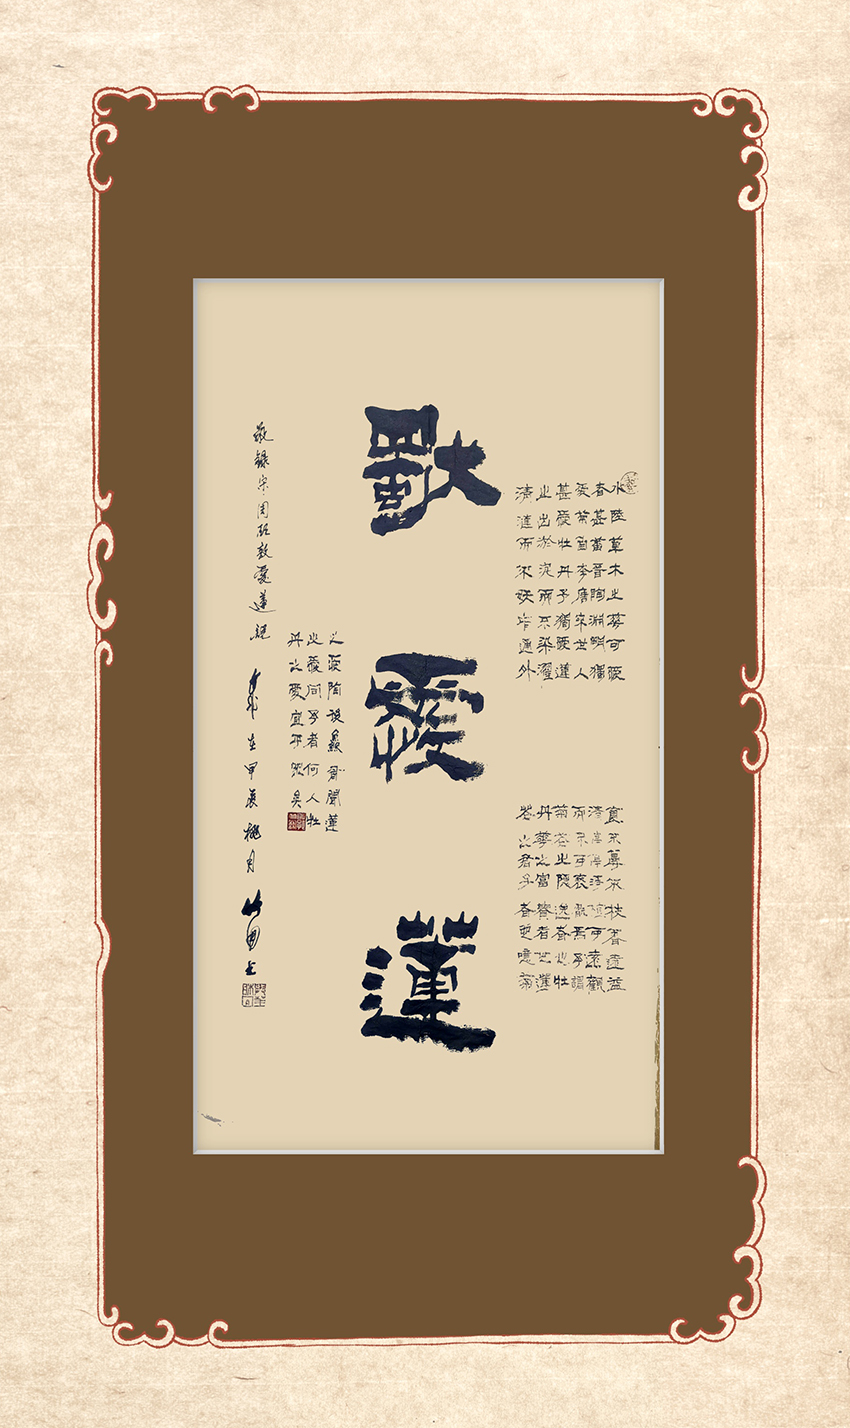 水陸草木之華可愛
者甚蕃晉陶淵明獨
愛菊自李唐來世人
甚愛牡丹予獨愛蓮
之出於泥而不染濯
清漣而不妖中通外
直不蔓不枝香遠益
清亭亭淨植可遠觀
而不可褻翫焉予謂
菊花之隱逸者也牡
丹華之富貴者也蓮
花之君子者也噫菊
獨愛蓮
之愛陶後鮮有聞蓮
之愛同予者何人牡
丹之愛宜乎眾矣
敬錄宋周頤敦愛蓮說 歲在甲辰桃月